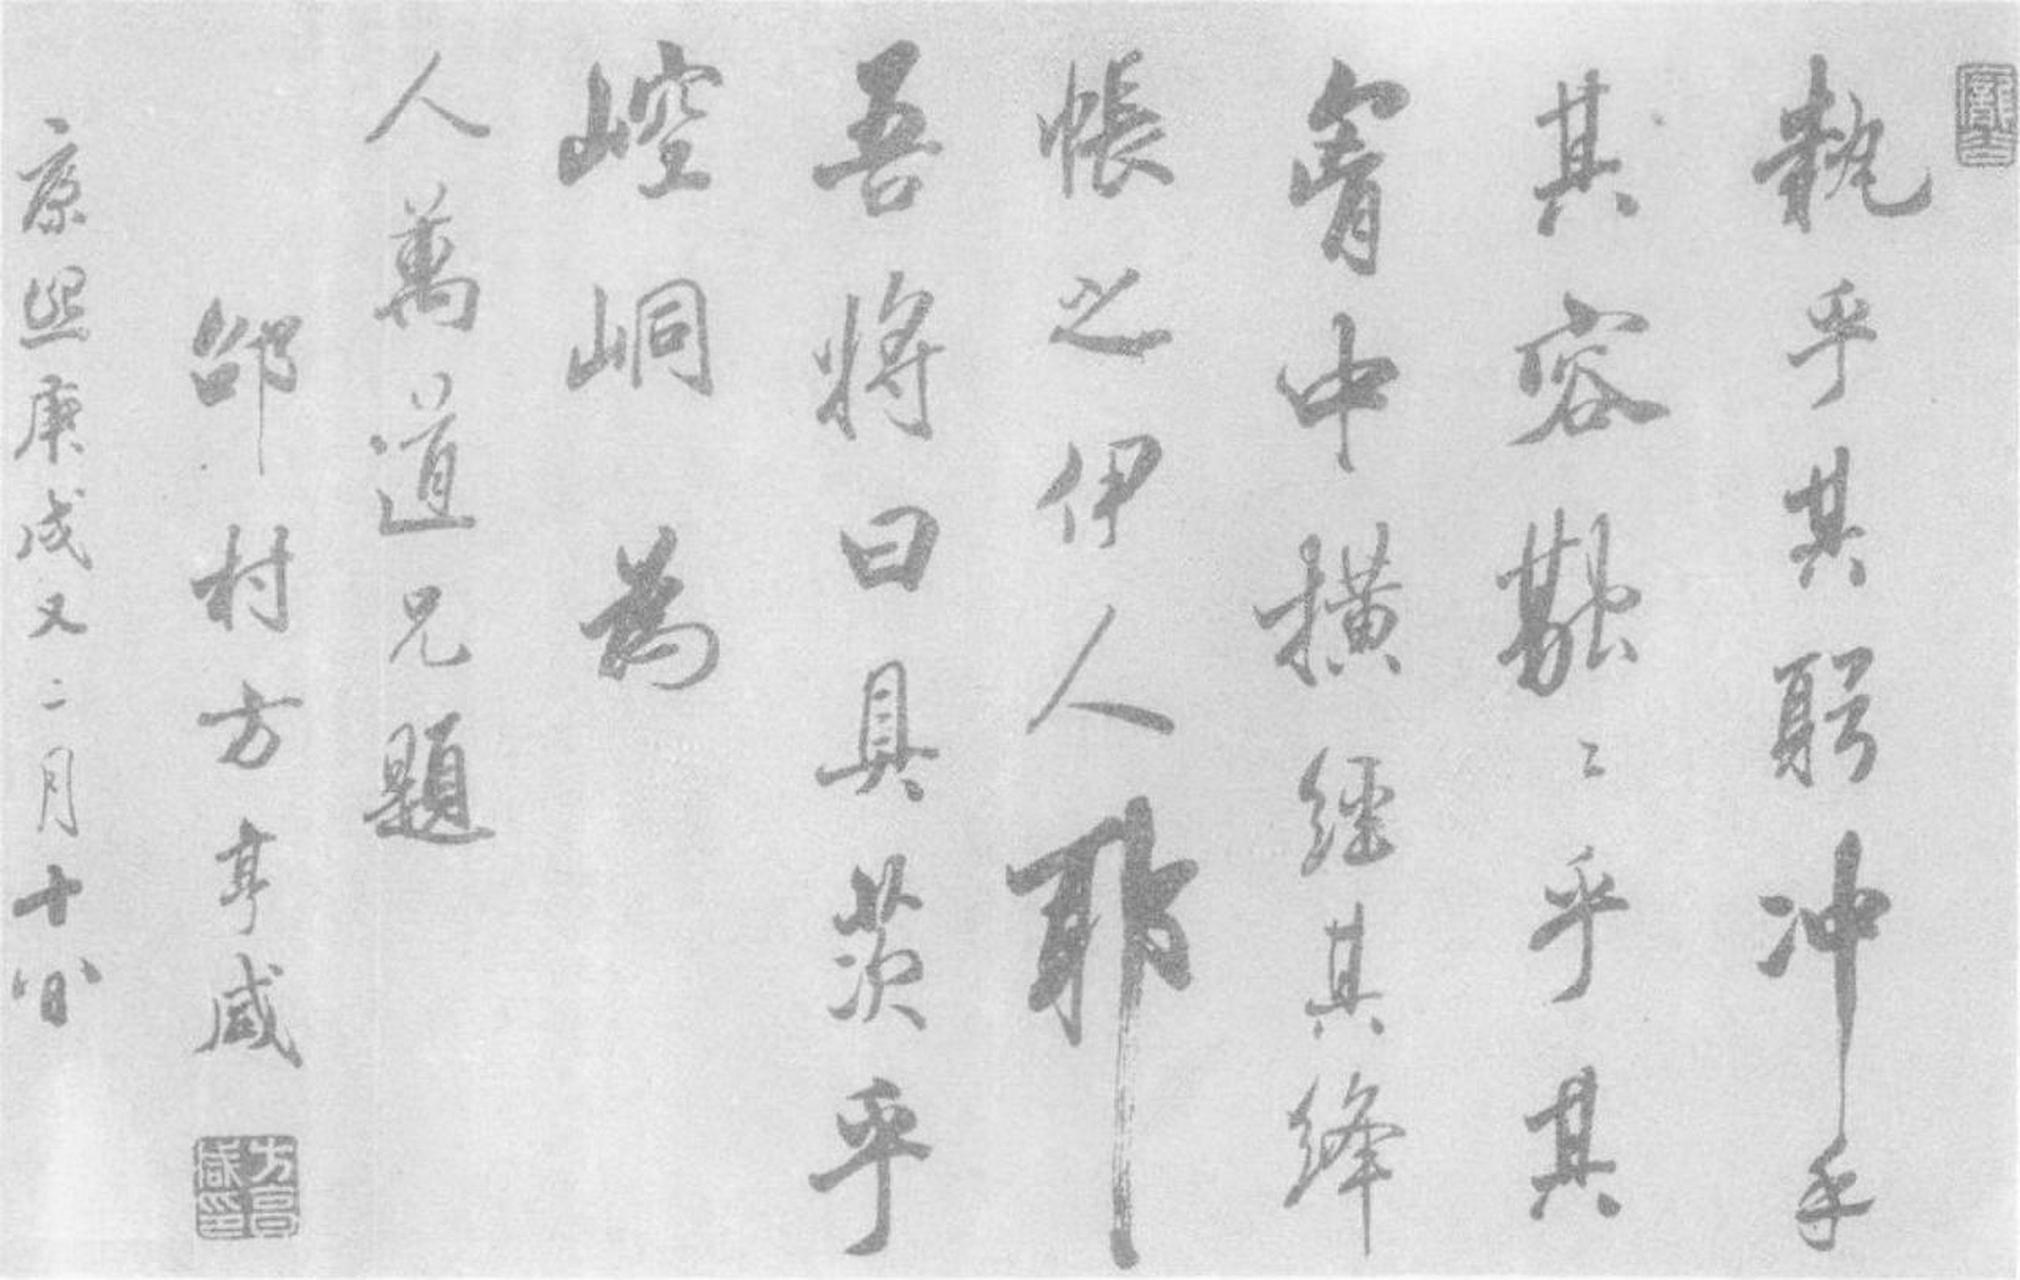 乎其躬冲乎
其容乎其
胷中横經其絳
帳之伊人耶
吾將曰具茨乎
崆峒為
人萬道兄題
邵村方亨咸
康熙庚戌又二月十八日
方亨咸印